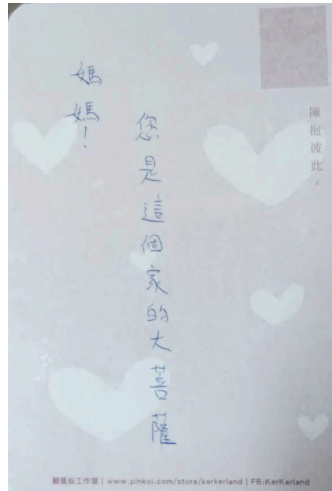 擁抱彼此。
媽媽！
您是這個家的大菩薩
www.pinkoi.com/store/kerkerland | FB:KerKerland